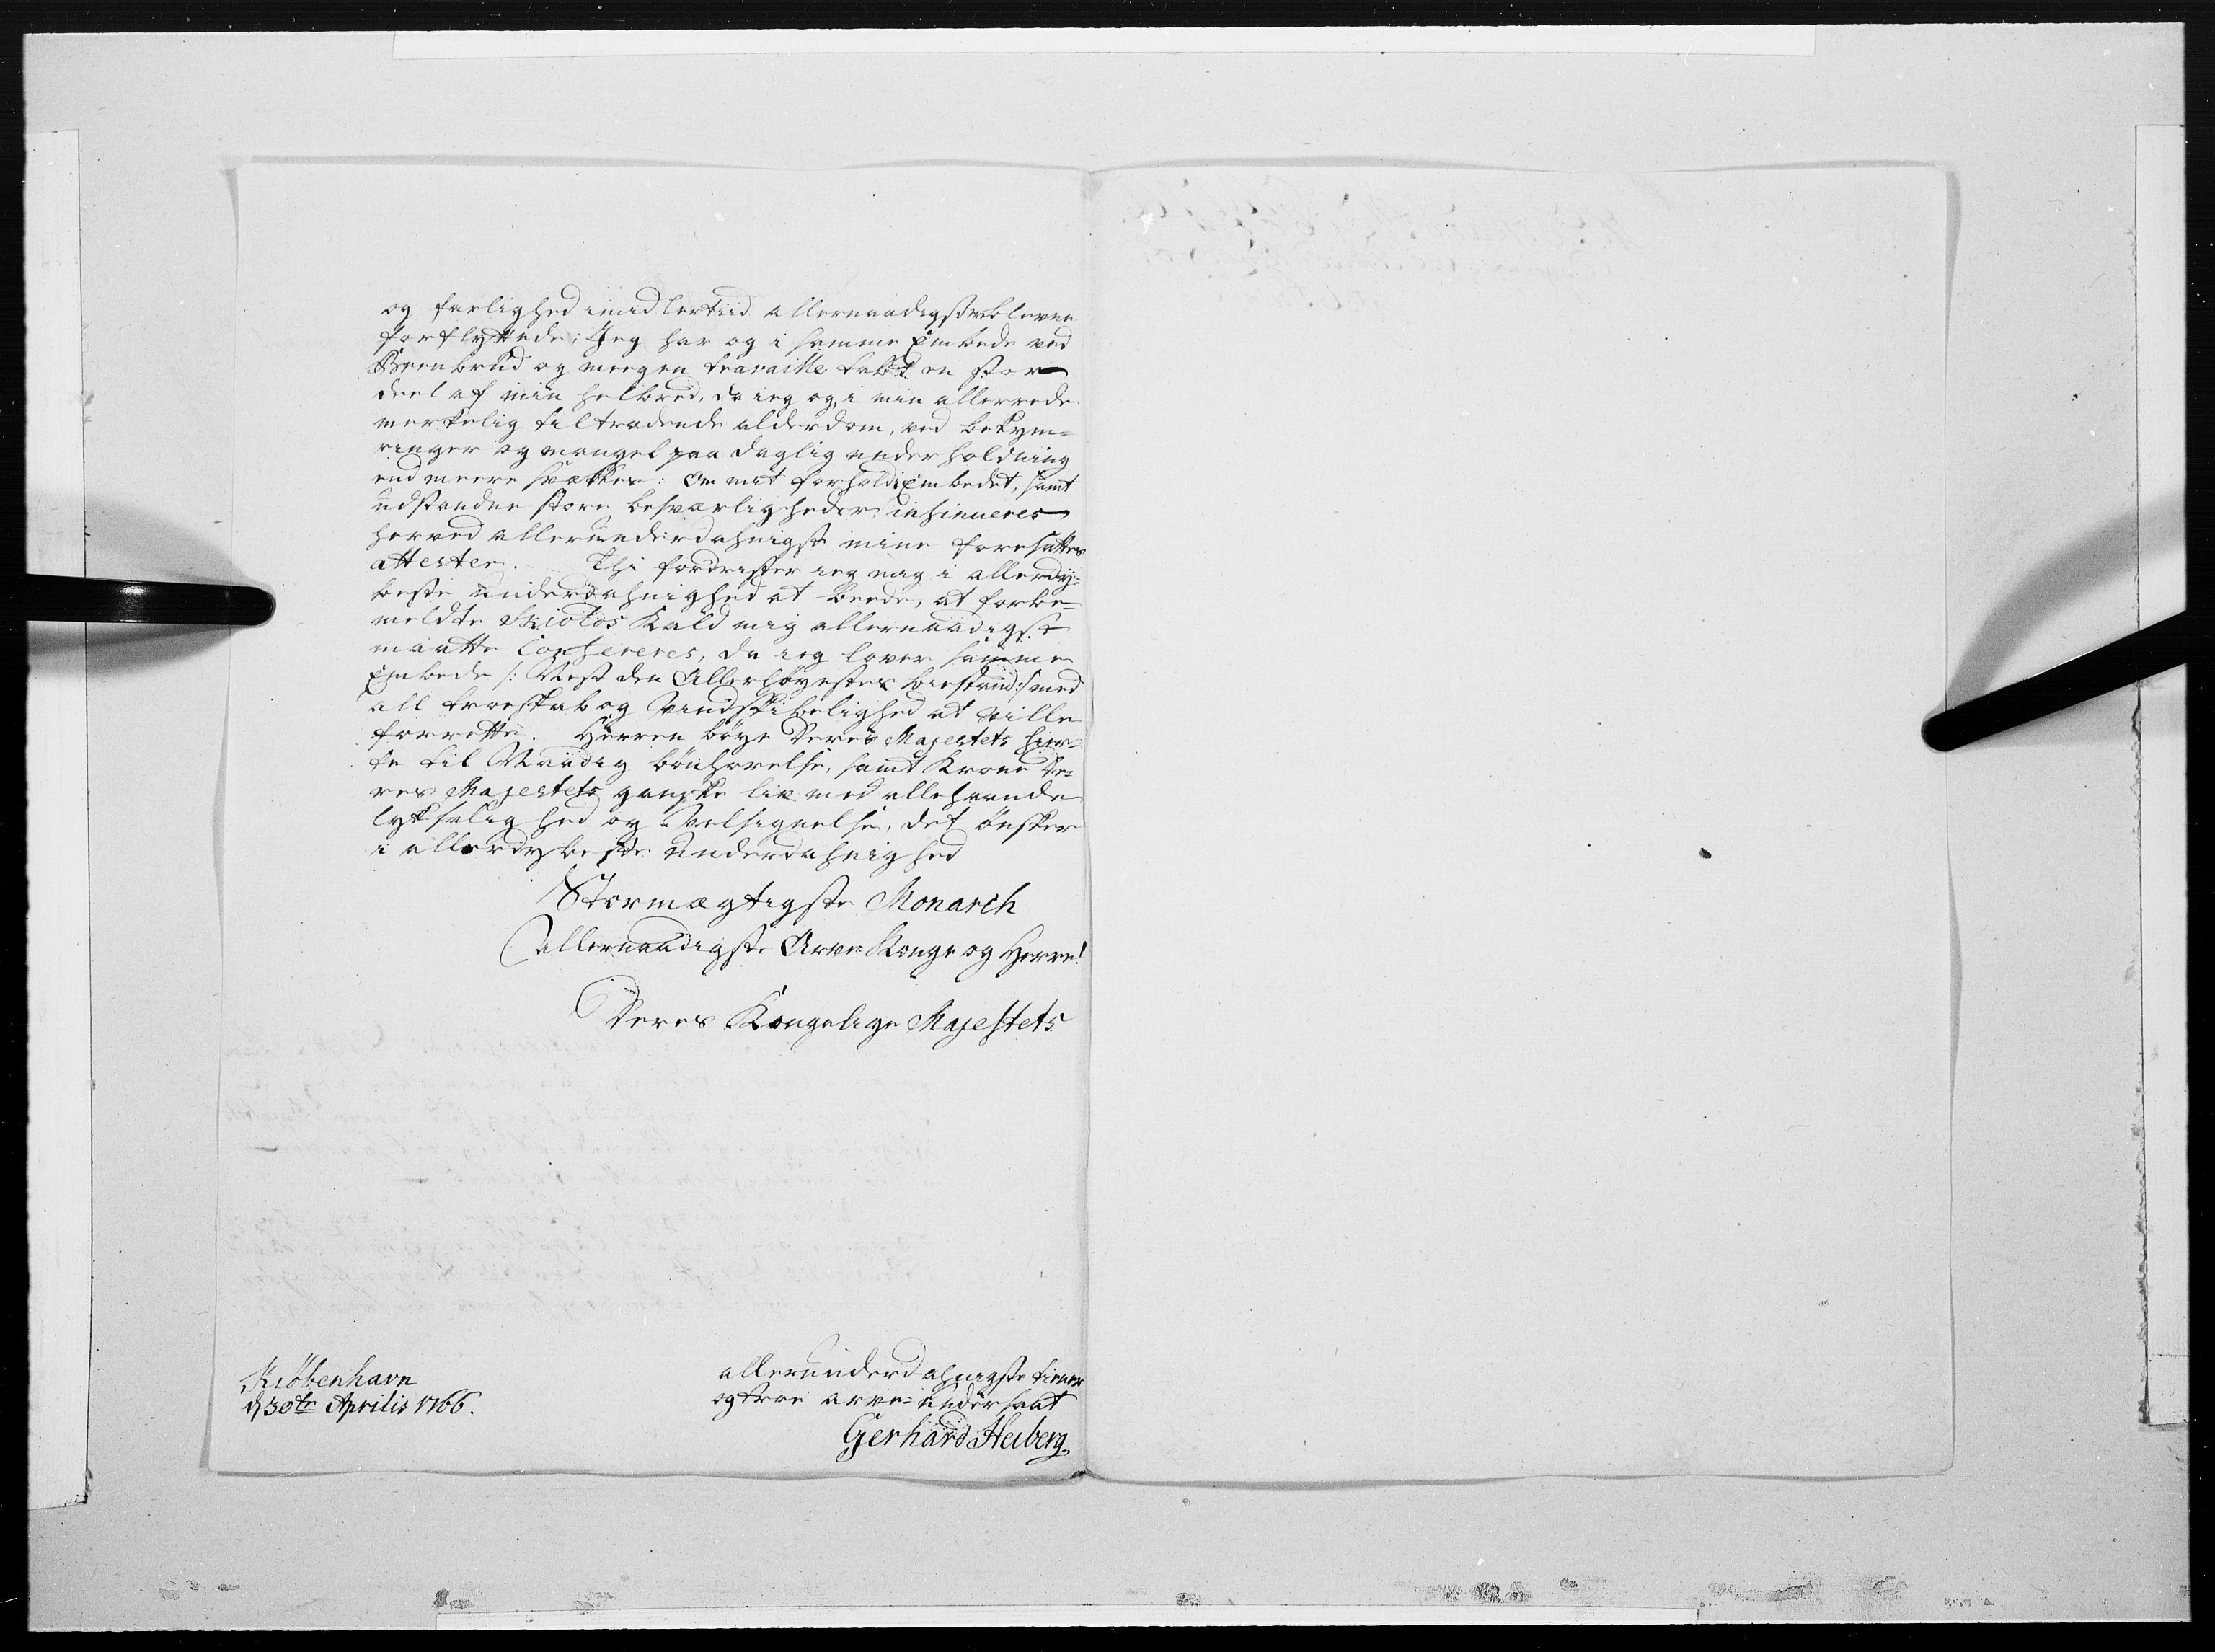 og farlighed imidlertiid allernaadigst ere bleven
forflyttede; Jeg har og i samme Embede ved
Beenbrud og meegen travaille tabt en stor
deel af min helbred, da jeg og, i min allerrede
merkelig tiltrædende alderdom, ved bekym=
ringer og mangel paa daglig underholdning
end meere svækkes: Om mit forhold i Embedet, samt
udstandne store besværligheder insinueres
herved allerunderdahnigst mine foresattes
attester. Thi fordrister jeg mig i allerdy=
beste underdahnighed at beede, at forbe=
meldte Skiolds Kald mig allernaadigst
maatte Confereres, da jeg lover samme
Embede /: Nest den Allerhøyestes biestand :/ med
all troeskab og Vindskibelighed at ville
forrette. Herren bøye Deres Majestets Hier=
te til Naadig bønhørelse, samt Krone De=
res Majestets ganske liv med allehaande
lyksalighed og Velsignelse, det ønsker
i allerdybeste underdahnighed
Stormægtigste Monarch
Allernaadigste Arve Konge og Herre!
Deres Kongelige Majestets
Kiøbenhavn
d 30te Aprilis 1766.
allerunderdahnigste tiener
og troe arve-undersaat
Gerhard Heiberg